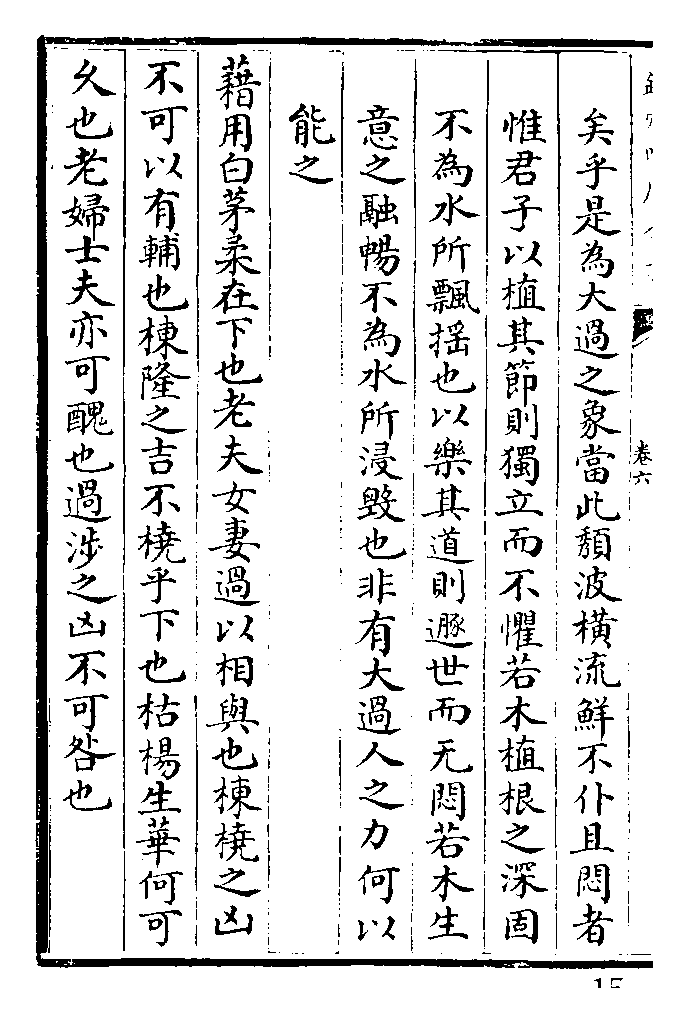 卷六
矣乎是為大過之象當此頽波橫流鮮不仆且悶者
惟君子以植其節則獨立而不懼若木植根之深固
不為水所飄揺也以樂其道則遯世而无悶若木生
意之融暢不為水所浸毀也非有大過人之力何以
能之
藉用白茅柔在下也老夫女妻過以相與也棟橈之凶
不可以有輔也棟隆之吉不橈乎下也枯楊生華何可
久也老婦士夫亦可醜也過涉之凶不可咎也